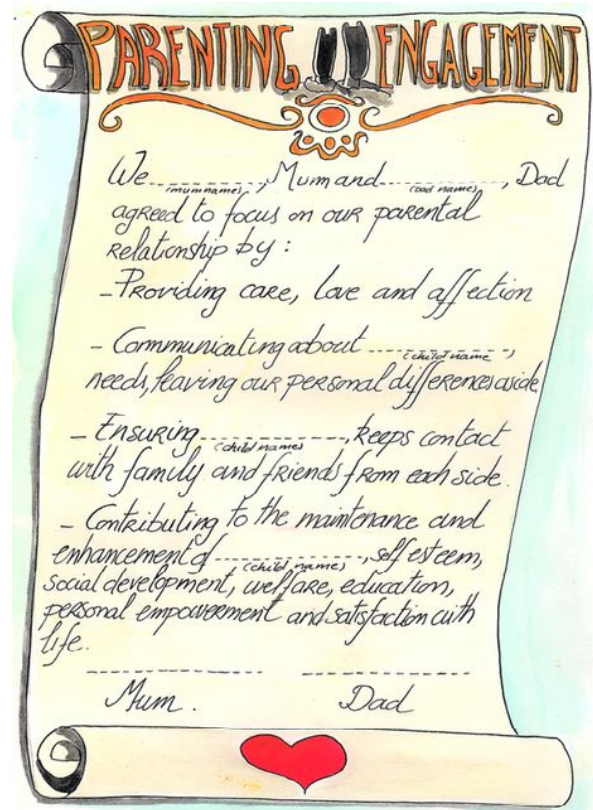 PARENTING ENGAGEMENT
We ------------, Mum and ------------, Dad
(mum names) (Dad names)
agreed to focus on our parental
relationship by :
- Providing care, love and affection
- Communicating about ------------,
(child name
needs, leaving our personal differences aside
- Ensuring ------------, keeps contact
(child names)
with family and friends from each side.
- Contributing to the maintenance and
enhancement of ------------, self esteem,
(child name)
social development, welfare, education,
personal empowerment and satisfaction with
life.
Mum. Dad